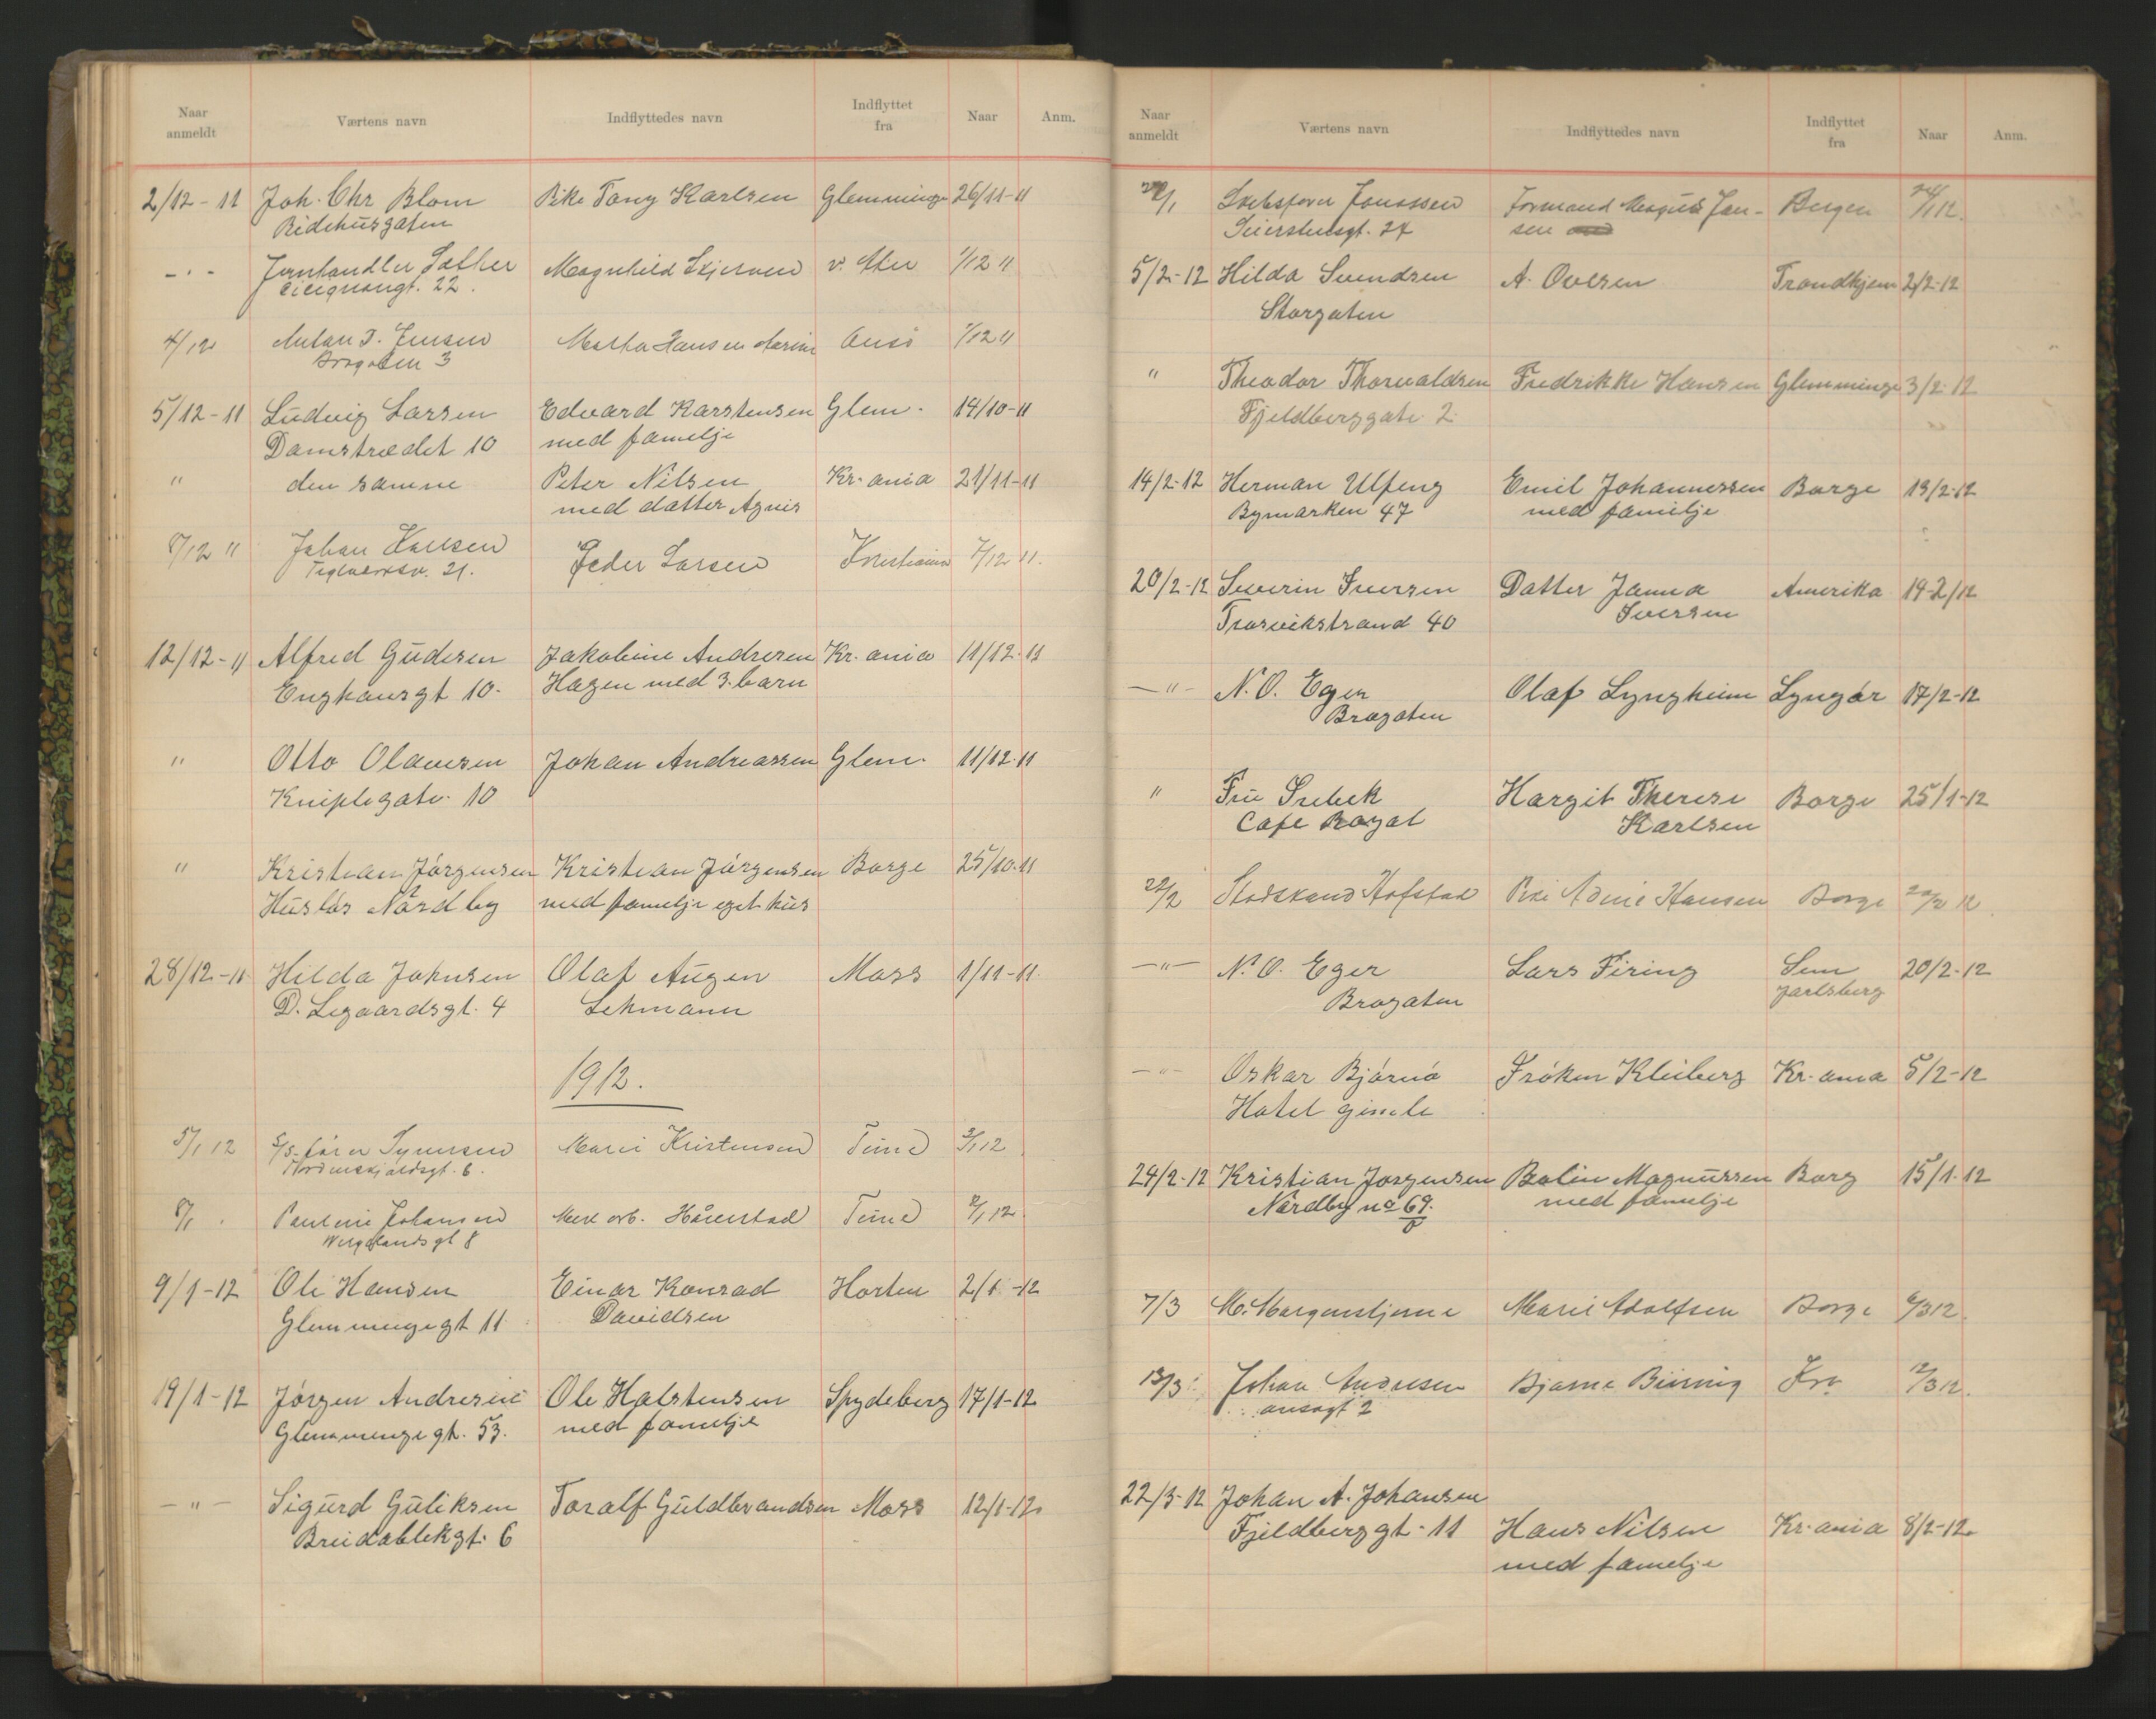 Naar anmeldt Værtens navn Indflyttedes navn Indflyttet fra Naar Anm.
2/12-11 Joh. Chr Blom Pike Tony Karlsen Glemminge 26/11-11
Ridehusgaten
-"- Jernhandler Magnhild v. Aker 1/12 11
22.
4/12 Anton J. Jensen Martha Hansen 1/12 11
Brogaten 3
5/12-11 Ludvig Larsen Edvard Karstensen Glem. 14/10-11
Damstrædet 10 med familje
" den samme Peter Nilsen Kr.ania 21/11-11
med datter Agnes
8/12 11 Johan Peder Larsen Kristiania 7/12 11.
21.
12/12-11 Alfred Gudesen Jakobine Andresen Kr.ania 11/12-11
Enghausgt 10. Hagen med 3. barn
" Otto Olavesen Johan Andreassen Glem. 11/12-11
Kniplegate. 10
" Kristian Jörgensen Kristian Jörgensen Borge 25/10-11
Huslös Nordby med familje eget hus
28/12-11 Hilda Johnsen Olaf Augen Moss 1/11-11.
D. Legaardsgt. 4 Lehmann
1912.
5/1 12 Marie Kristensen Tune 3/1 12
Nordenskjoldsgt. 6.
8/1 Pauline Johansen Tune 8/1 12
Wergelandsgt 8
9/1-12 Ole Hansen Einar Konrad Horten 2/1-12
Glemmengegt 11 Davidsen
19/1-12 Jörgen Andresen Ole Halstensen Spydeberg 17/1-12
Glemmengegt. 53. med familje
-"- Sigurd Guliksen Toralf Guldbrandsen Moss 12/1-12
Breidablikgt. 6
Naar anmeldt Værtens navn Indflyttedes navn Indflyttet fra Naar Anm.
Jonassen Formand Magnus Jan- Bergen
Seierstensgt. 24 sen
5/2-12 Hilda Svendsen A. Ovesen Trondhjem 2/2-12
Storgaten
" Theodor Thorvaldsen Fredrikke Hansen Glemminge 3/2-12
Fjeldberggate 2
14/2-12 Herman Ulfeng Emil Johannessen Borge 13/2-12
Bymarken 47 med familje
20/2-12 Severin Iversen Datter Janna Amerika 19-2/12
Trosvikstrand 40 Iversen
-"- N.O. Eger Olaf Lyngheim Lyngör 17/2-12
Brogaten
" Fru Srebek Hargit Therese Borge 25/1-12
Cafe Royal Karlsen
22/2 Hofstad Hansen Borge 20/2 12
-"- N.O. Eger Lars Firing Sem 20/2-12
Brogaten Jarlsberg
-"- Oskar Bjørnö Fröken Kleiberg Kr.ania 5/2-12
Hotel gimle
24/2-12 Kristian Jorgensen Bolin Magnussen Borg 15/1-12
Nordby no 69. med familje
7/3 M. Morgenstjerne Marie Adolfsen Borge 6/3 12.
13/3 Johan Andresen Bjarne Kra 12/3 12.
2
22/3-12 Johan A. Johansen
Fjeldberggt. 11 Hans Nilsen Kr.ania 8/2-12
med familje